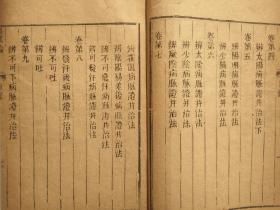 卷第四
辨太陽病脉證并治法下
卷第五
辨陽明病脉證并治法
辨少陽病脉證并治法
卷第六
辨太陰病脉證并治法
辨少陰病脉證并治法
辨厥陰病脉證并治法
卷第七
辨霍亂病脉證并治法
辨陰陽易差後病脉證并治法
辨不可發汗病脉證并治法
辨可發汗病脉證并治法
卷第八
辨發汗後病脉證并治法
辨不可吐
辨可吐
卷第九
辨不可下病脉證并治法